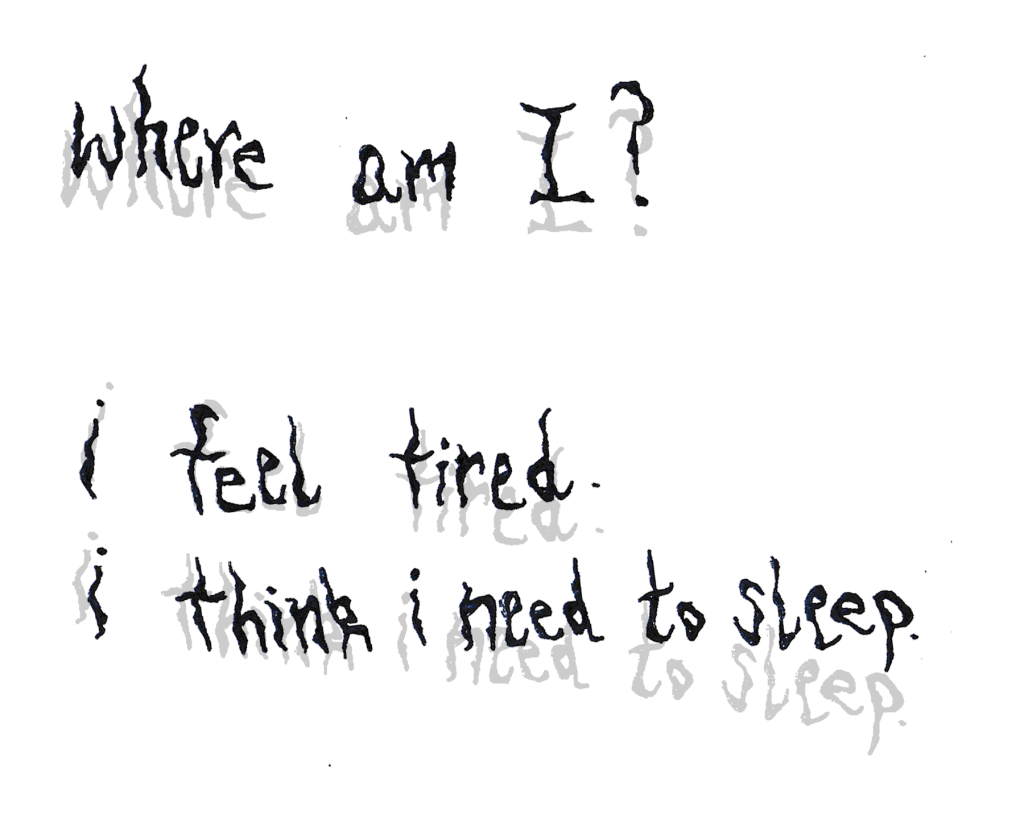 where am I?
i feel tired.
i think i need to sleep.